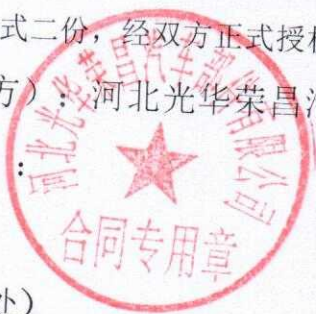 式二份，经双方正式授权
方）：河北光华荣昌汽
：
河北光华荣昌汽车部件有限公司
合同专用章
处）